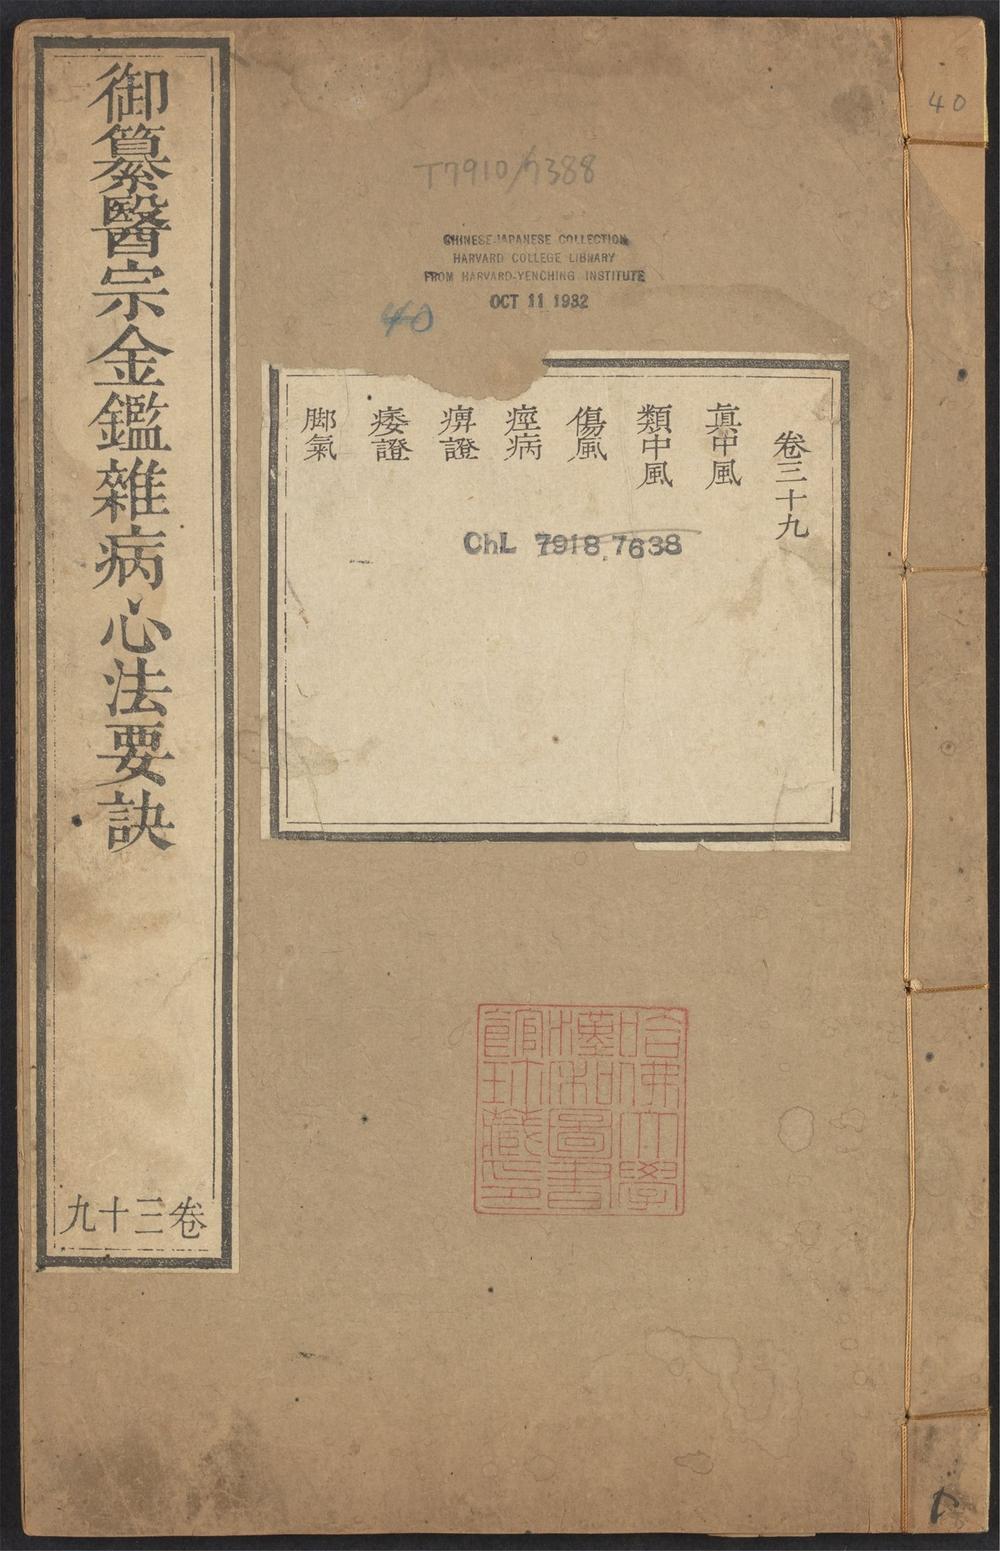 御纂醫宗金鑑雜病心法要訣
卷三十九
40
T7910/7388
CHINESE-JAPANESE COLLECTION
HARVARD COLLEGE LIBRARY
FROM HARVARD-YENCHING INSTITUTE
OCT 11 1932
40
卷三十九
眞中風
類中風
傷風
痙病
痹證
痿證
脚氣
ChL 7918.7638
哈佛大學
漢和圖書
館珎藏印